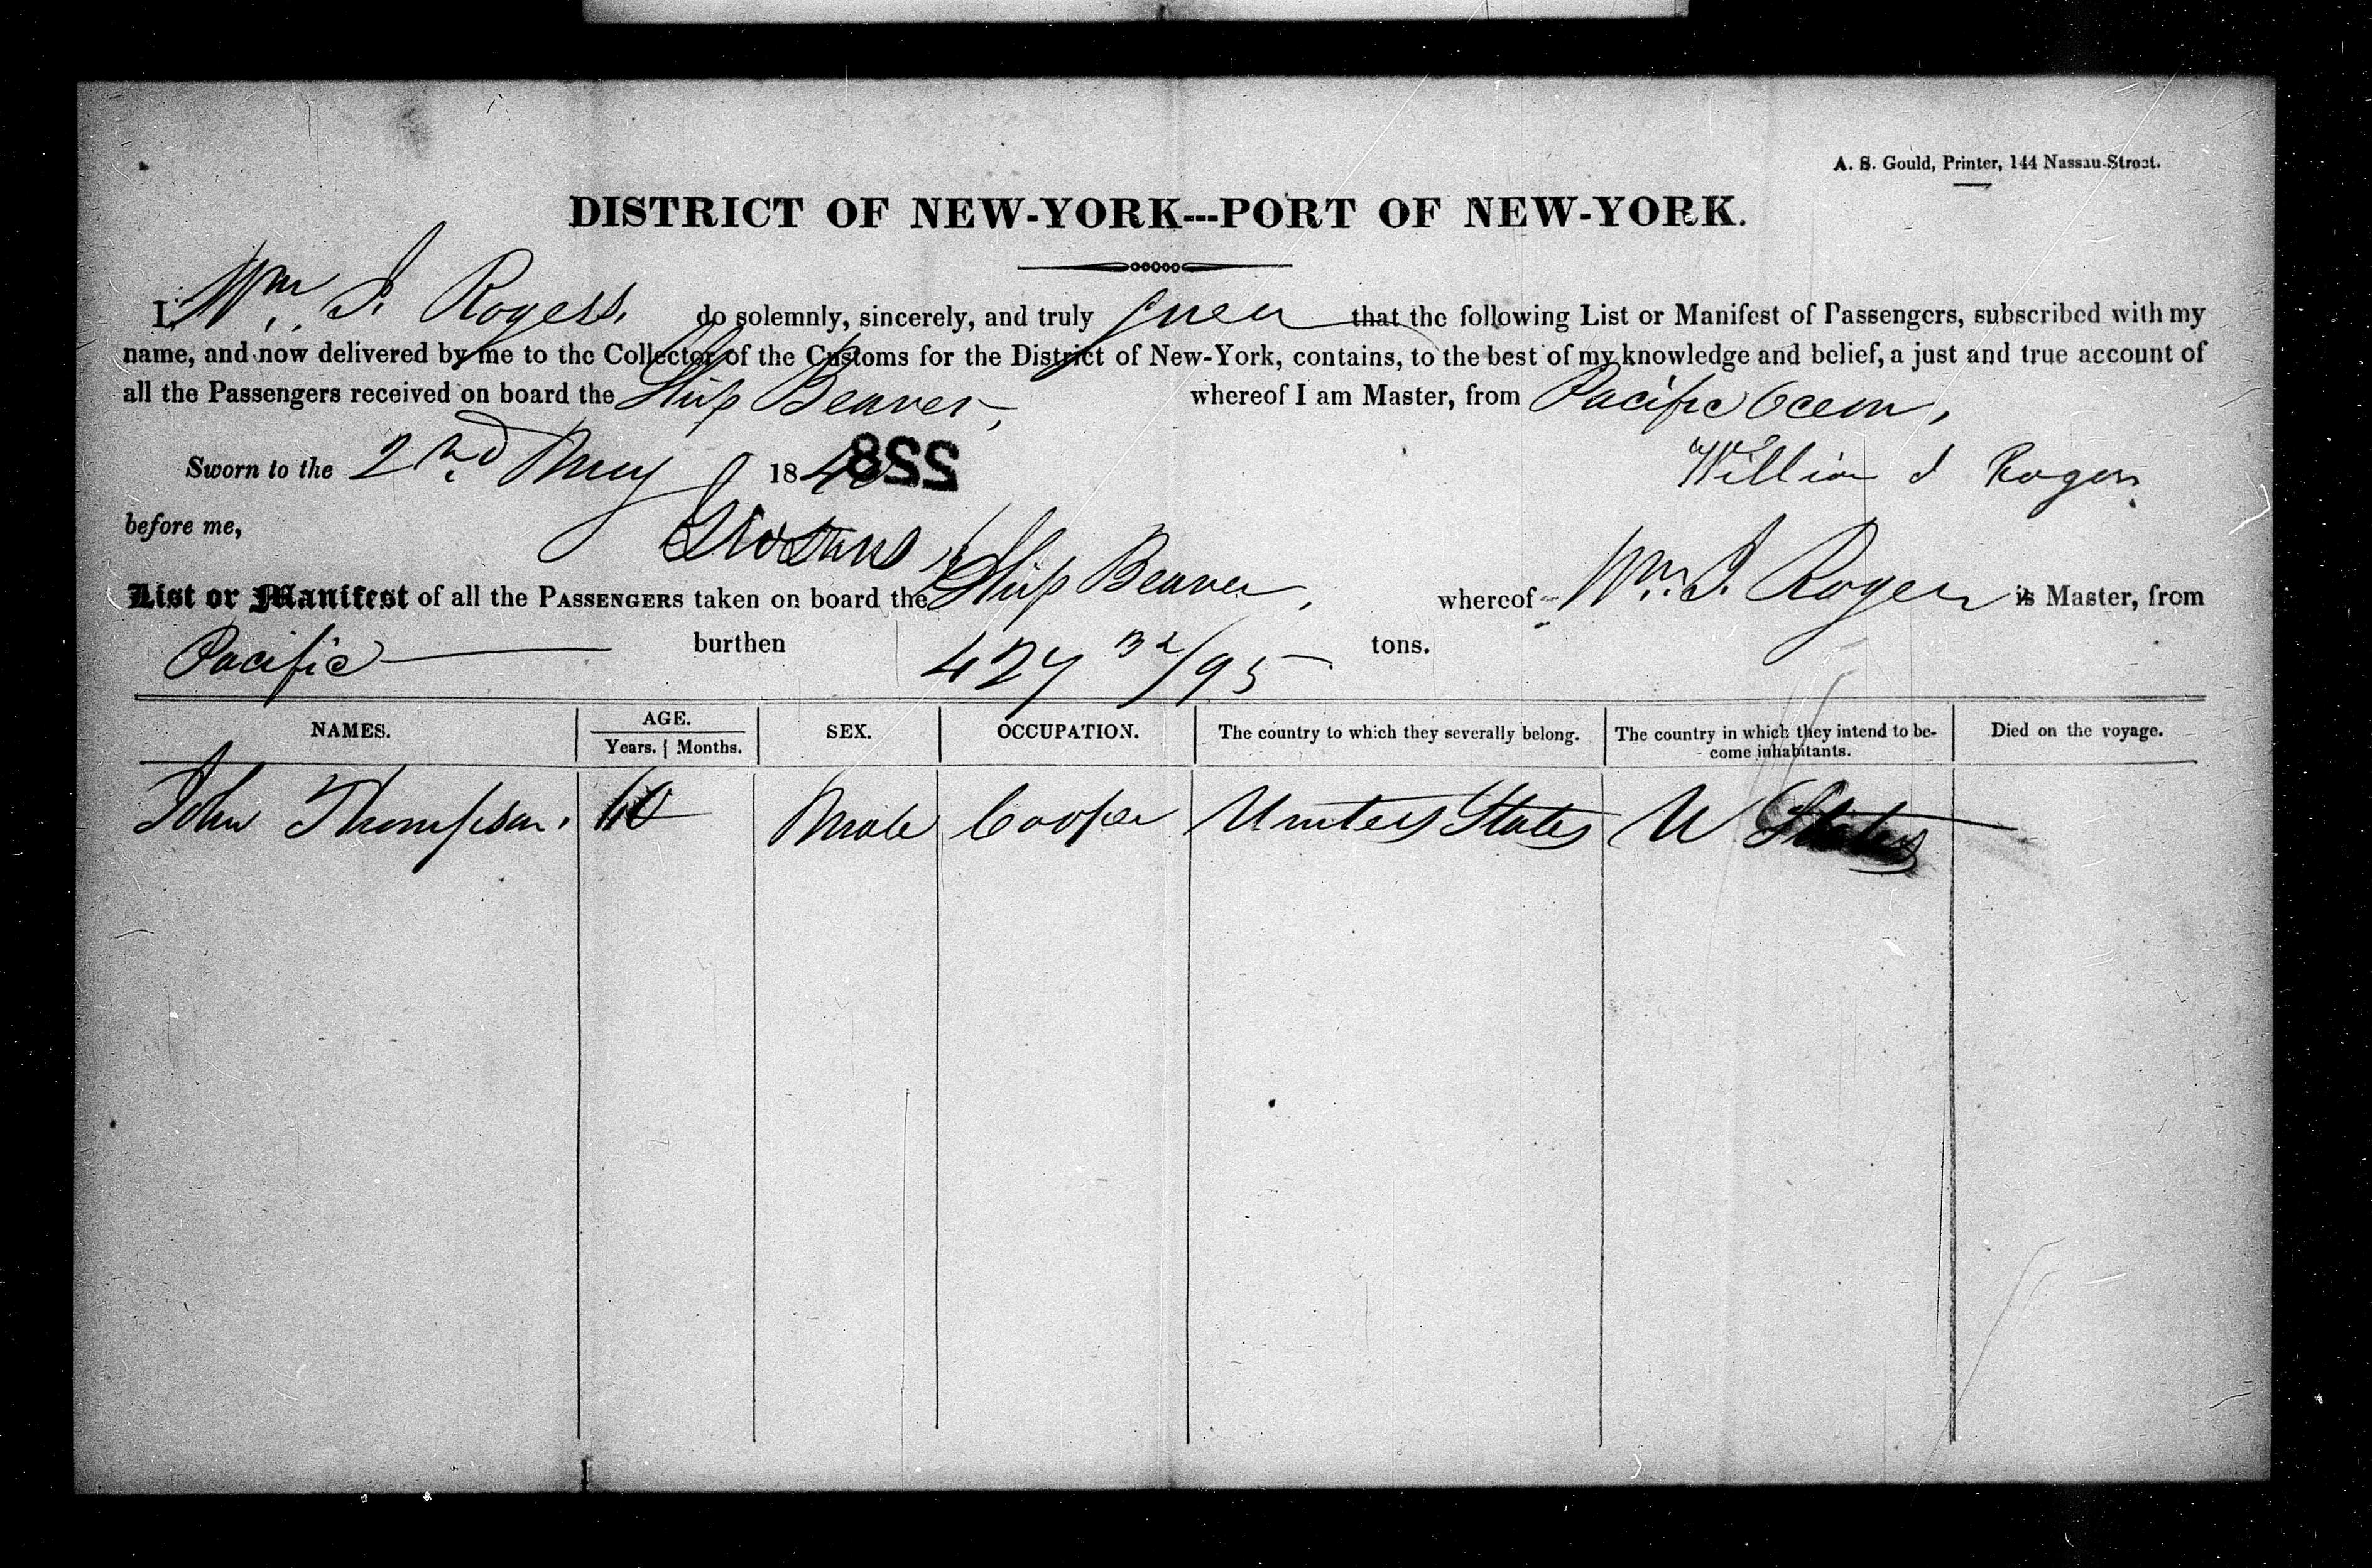 A. S. Gould, Printer, 144 Nassau-Street.
DISTRICT OF NEW-YORK---PORT OF NEW-YORK.
I, Wm. J. Rogers, do solemnly, sincerely, and truly swear that the following List or Manifest of Passengers, subscribed with my
name, and now delivered by me to the Collector of the Customs for the District of New-York, contains, to the best of my knowledge and belief, a just and true account of
all the Passengers received on board the Ship Beaver, whereof I am Master, from Pacific Ocean,
Sworn to the 2nd May 184 228 William J Rogers
before me,
List or Manifest of all the PASSENGERS taken on board the Ship Beaver, whereof Wm. J. Rogers is Master, from
Pacific burthen 427 32/95 tons.
NAMES. AGE. SEX. OCCUPATION. The country to which they severally belong. The country in which they intend to be- Died on the voyage.
Years. Months. come inhabitants.
John Thompson. Male Cooper United States U States